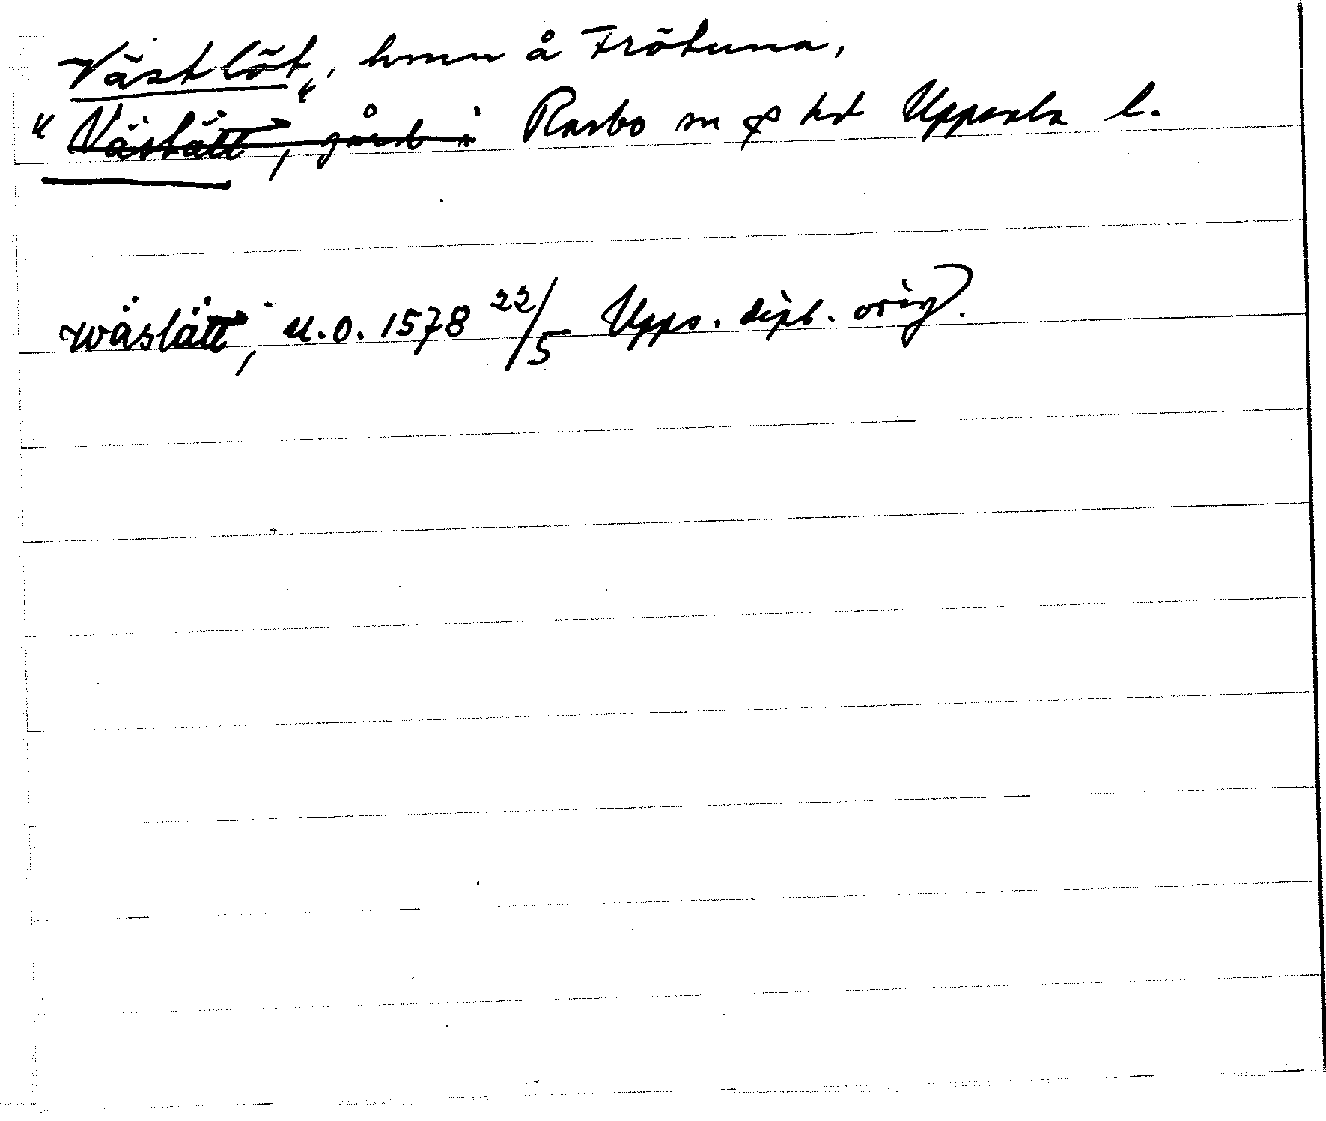 Västlöt", hmn å Frötuna,
" Väslätt, gård i Rasbo sn o hd Uppsala l.
wäslätt, u.o. 1578 22/5 Upps. dipl. orig.